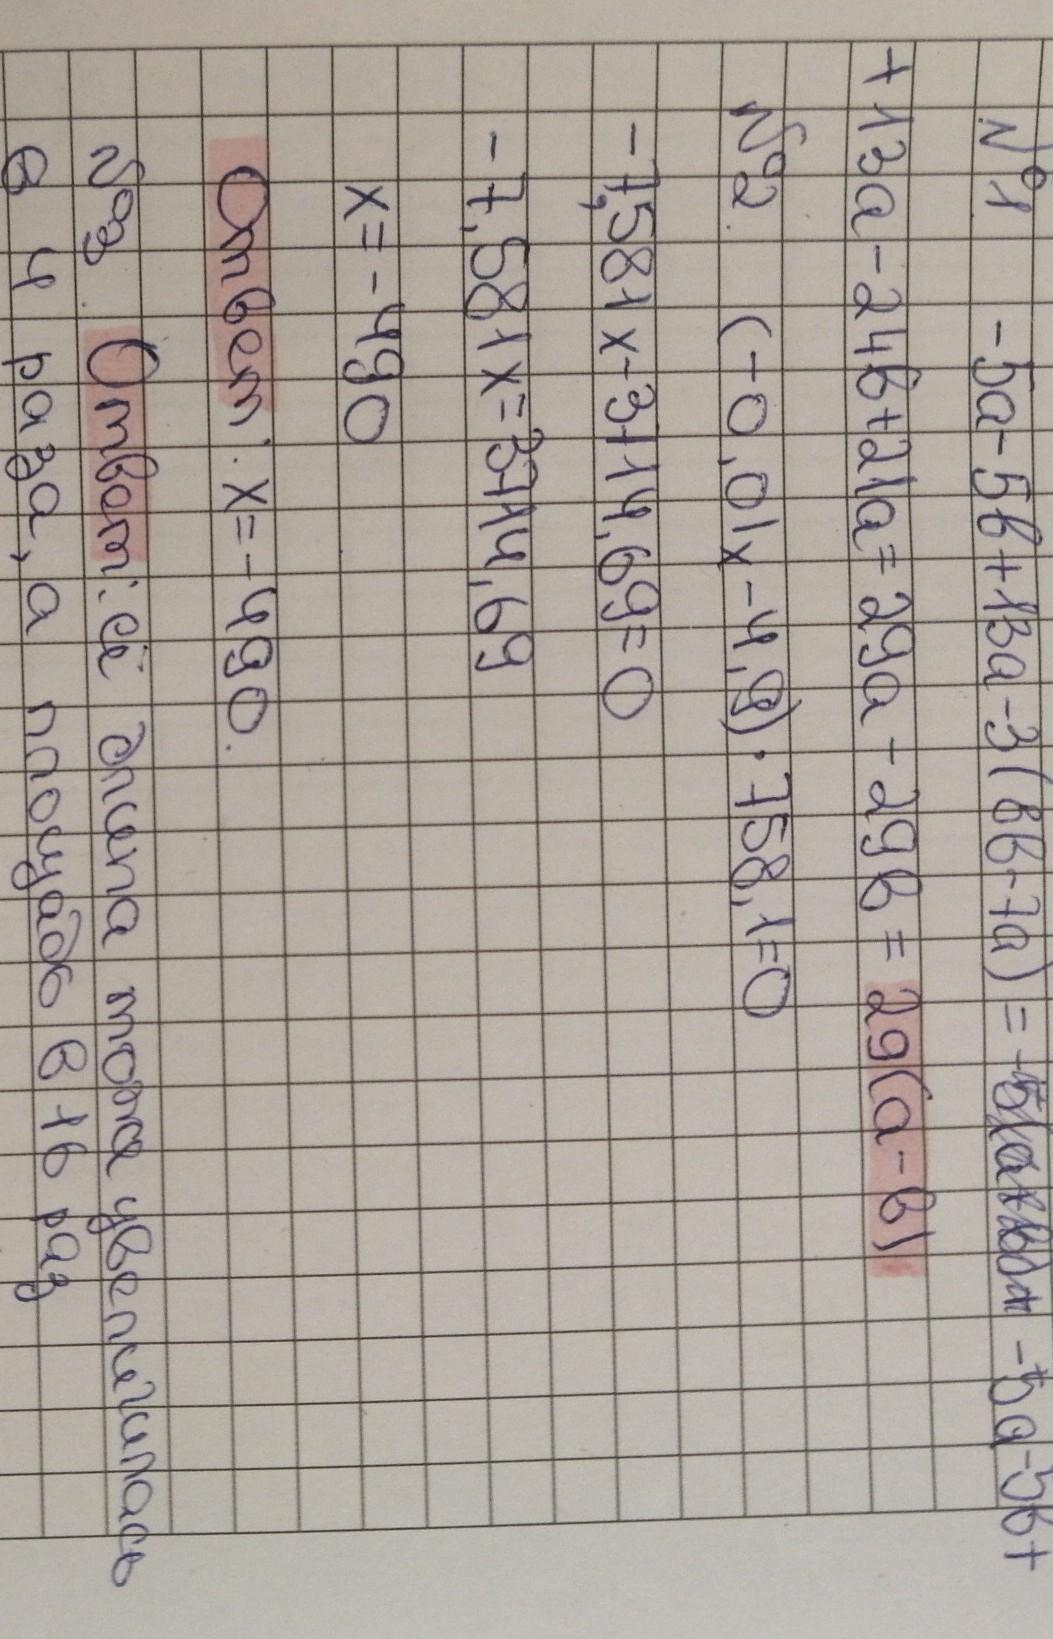 №1 -5a-5b+13a-3(8b-7a)= -5a-5b+
+13a-24b+21a=29a-29b=29(a-b)
№2 (-0,01x-4,9)·758,1=0
-7,581x-3714,69=0
-7,581x=3714,69
x=-490
Ответ: x=-490.
№3. Ответ: её длина тоже увеличилась
в 4 раза, а площадь в 16 раз